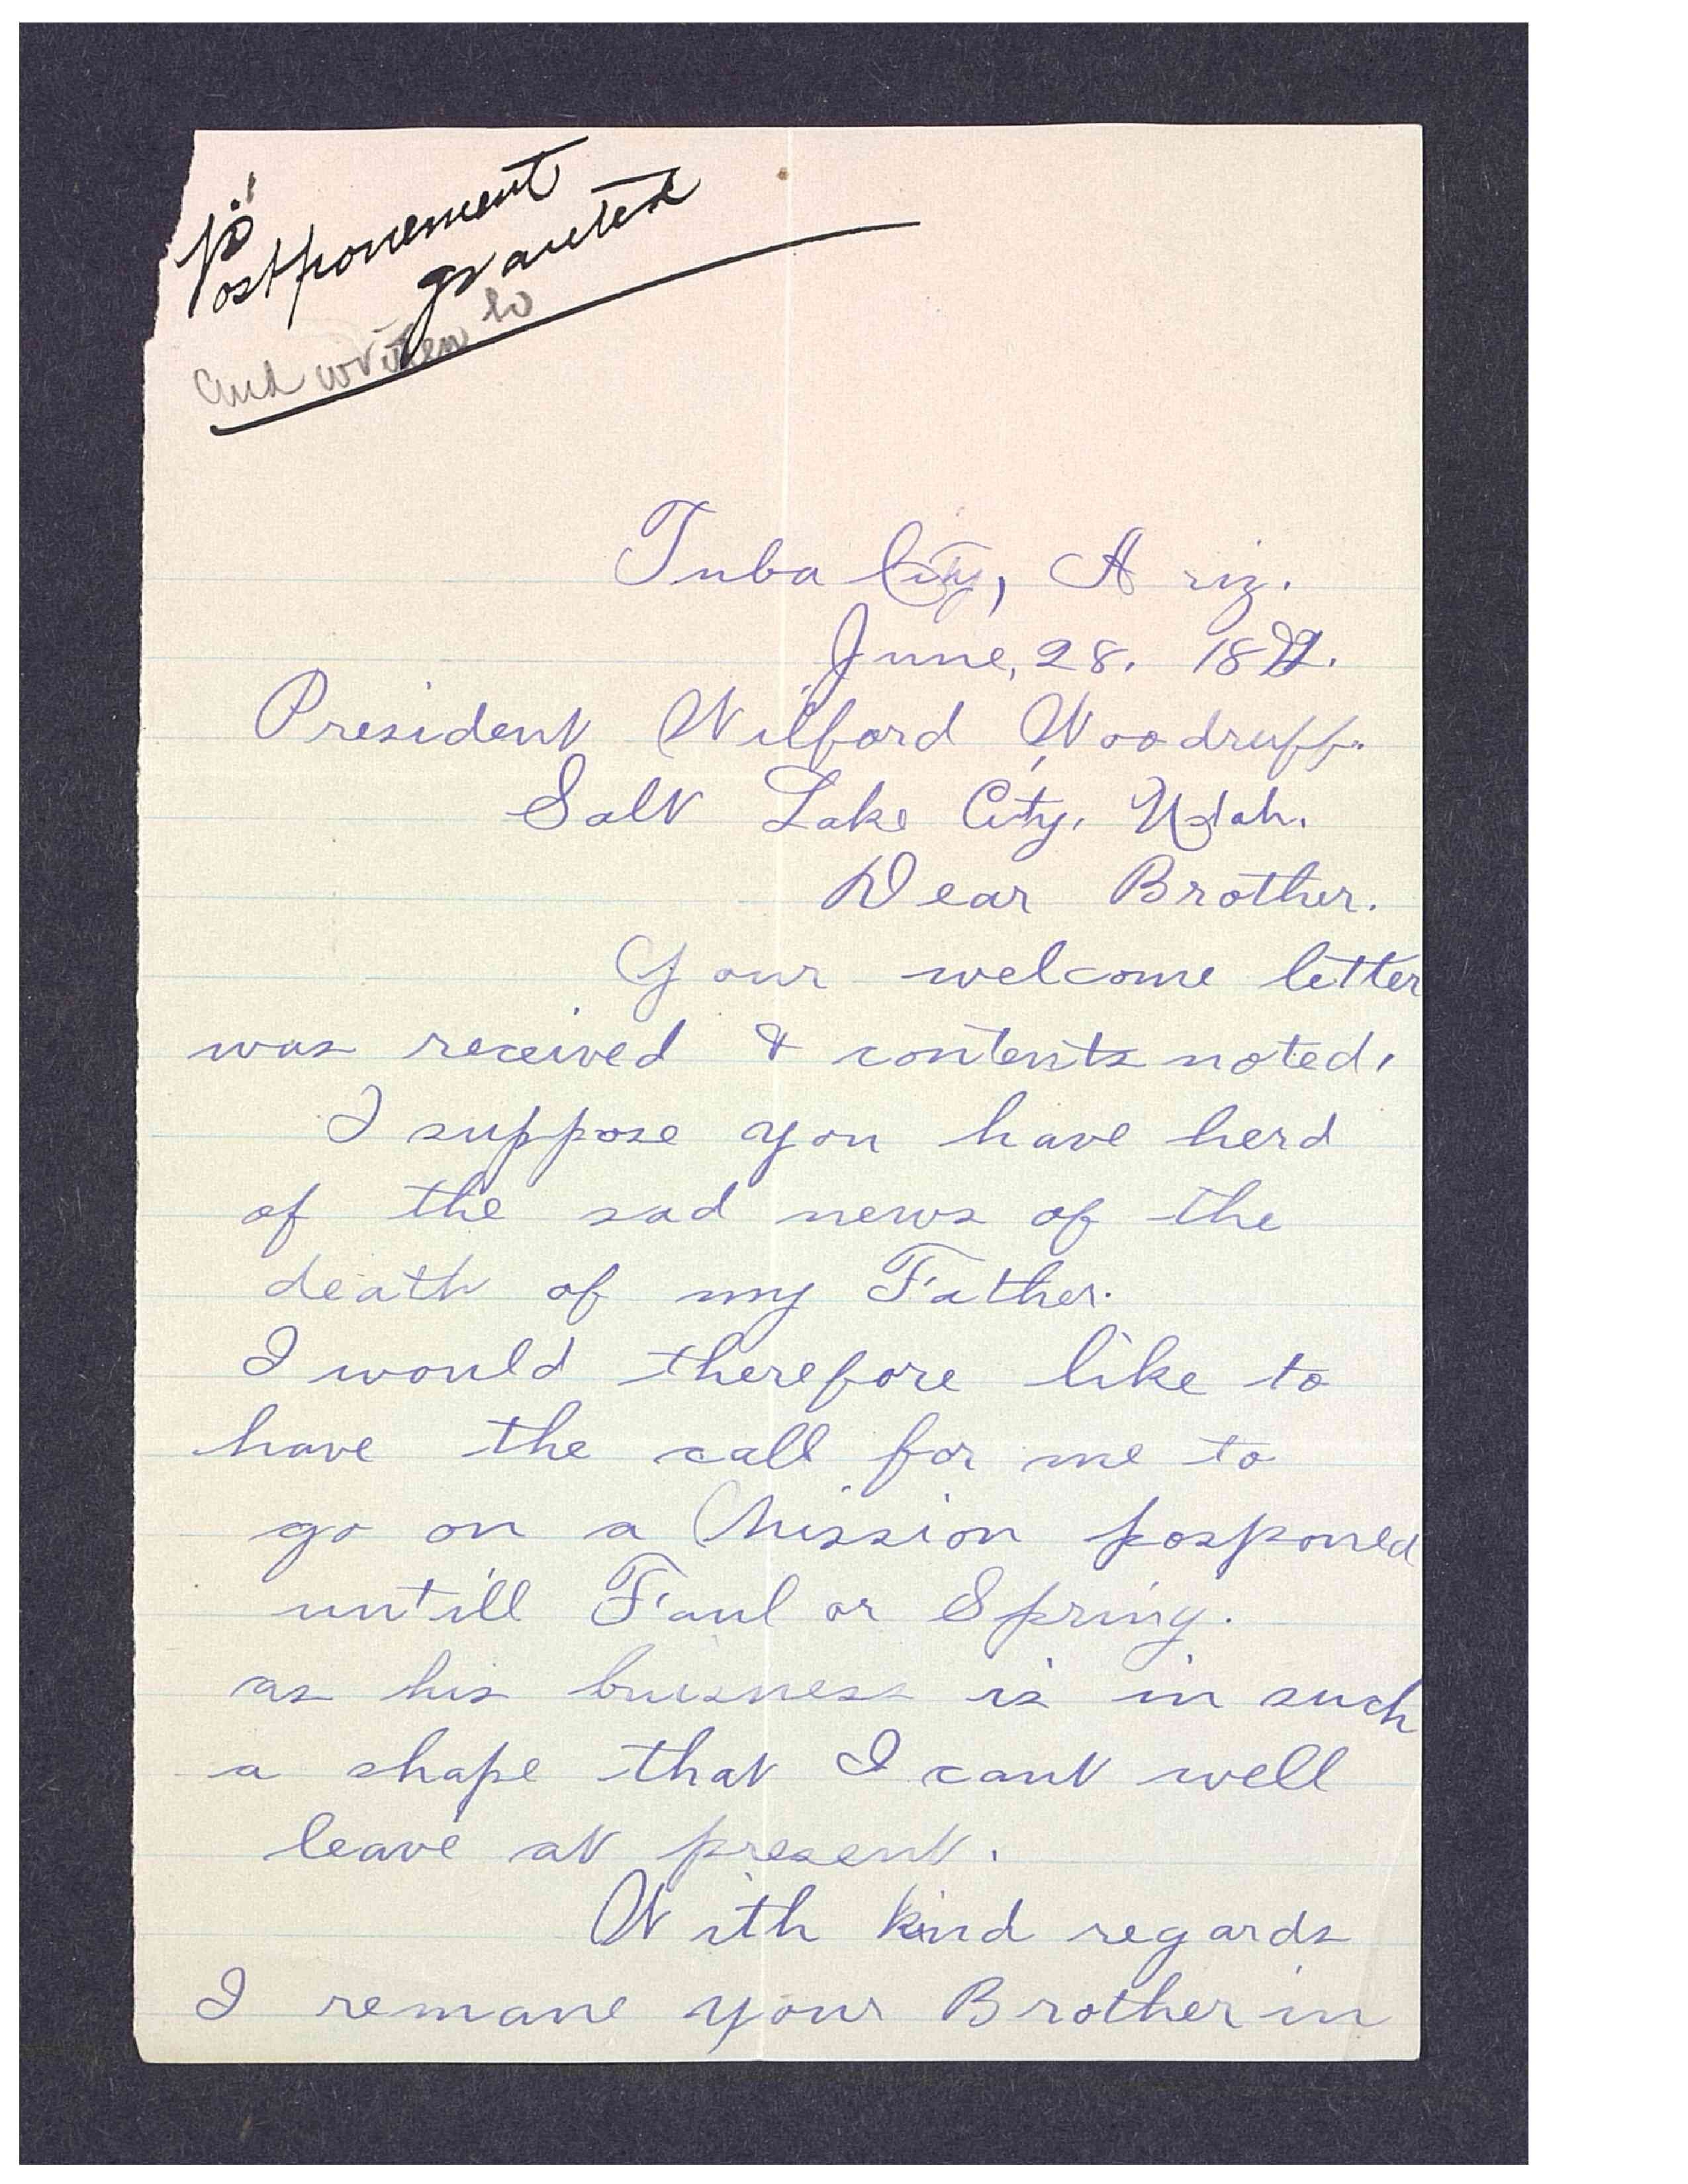 Postponement
granted
and written to
Tuba City, Ariz.
June, 28.
President Wilford Woodruff.
Salt Lake City, Utah.
Dear Brother.
Your welcome letter
was received & contents noted,
I suppose you have herd
of the sad news of the
death of my Father.
I would therefore like to
have the call for me to
go on a Mission posponed
untill Faul or Spring.
as his buisness is in such
a shape that I cant well
leave at present.
With kind regards
I remane your Brother in